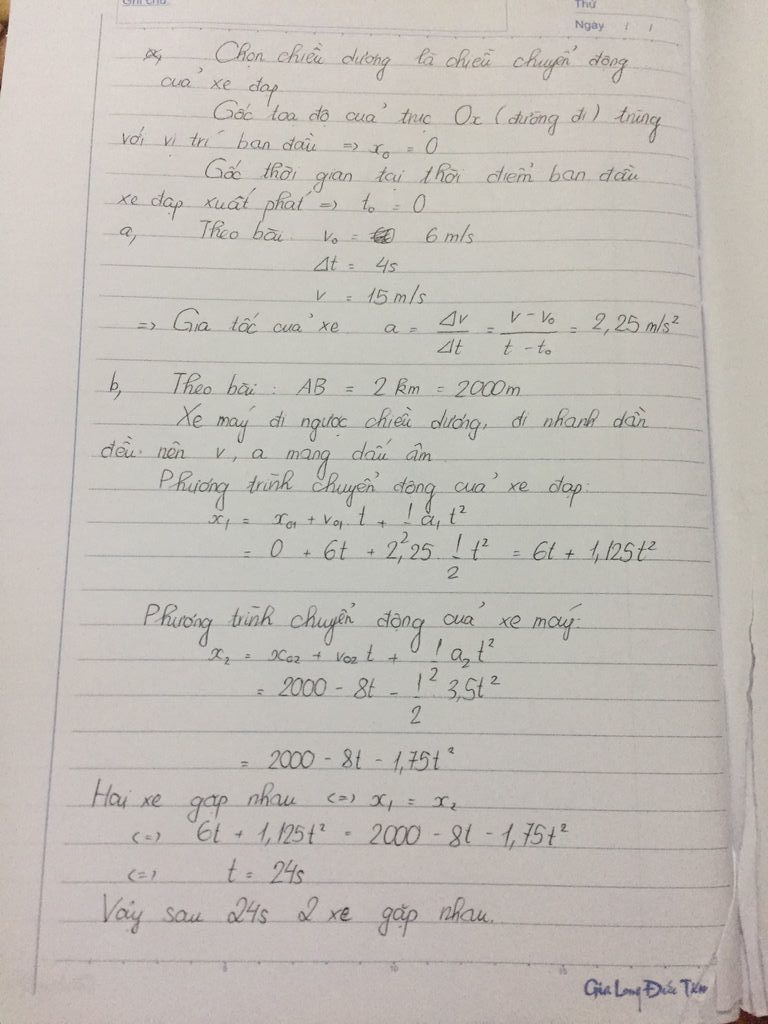 Ghi chú:
Thứ
Ngày / /
Chọn chiều dương là chiều chuyển động
của xe đạp
Gốc toạ độ của trục Ox (đường đi) trùng
với vị trí ban đầu => x₀ = 0
Gốc thời gian tại thời điểm ban đầu
xe đạp xuất phát => t₀ = 0
a, Theo bài: v₀ = 6 m/s
Δt = 4s
v = 15 m/s
=> Gia tốc của xe a = Δv/Δt = (v - v₀)/(t - t₀) = 2,25 m/s²
b, Theo bài : AB = 2 km = 2000m
Xe máy đi ngược chiều dương, đi nhanh dần
đều nên v, a mang dấu âm
Phương trình chuyển động của xe đạp:
x₁ = x₀₁ + v₀₁ t + 1/2 a₁t²
= 0 + 6t + 2,25 . 1/2 t² = 6t + 1,125t²
Phương trình chuyển động của xe máy:
x₂ = x₀₂ + v₀₂ t + 1/2 a₂t²
= 2000 - 8t - 1/2 3,5t²
= 2000 - 8t - 1,75t²
Hai xe gặp nhau <=> x₁ = x₂
<=> 6t + 1,125t² = 2000 - 8t - 1,75t²
<=> t = 24s
Vậy sau 24s 2 xe gặp nhau.
5 10 15
Gia Long Đức Tiến